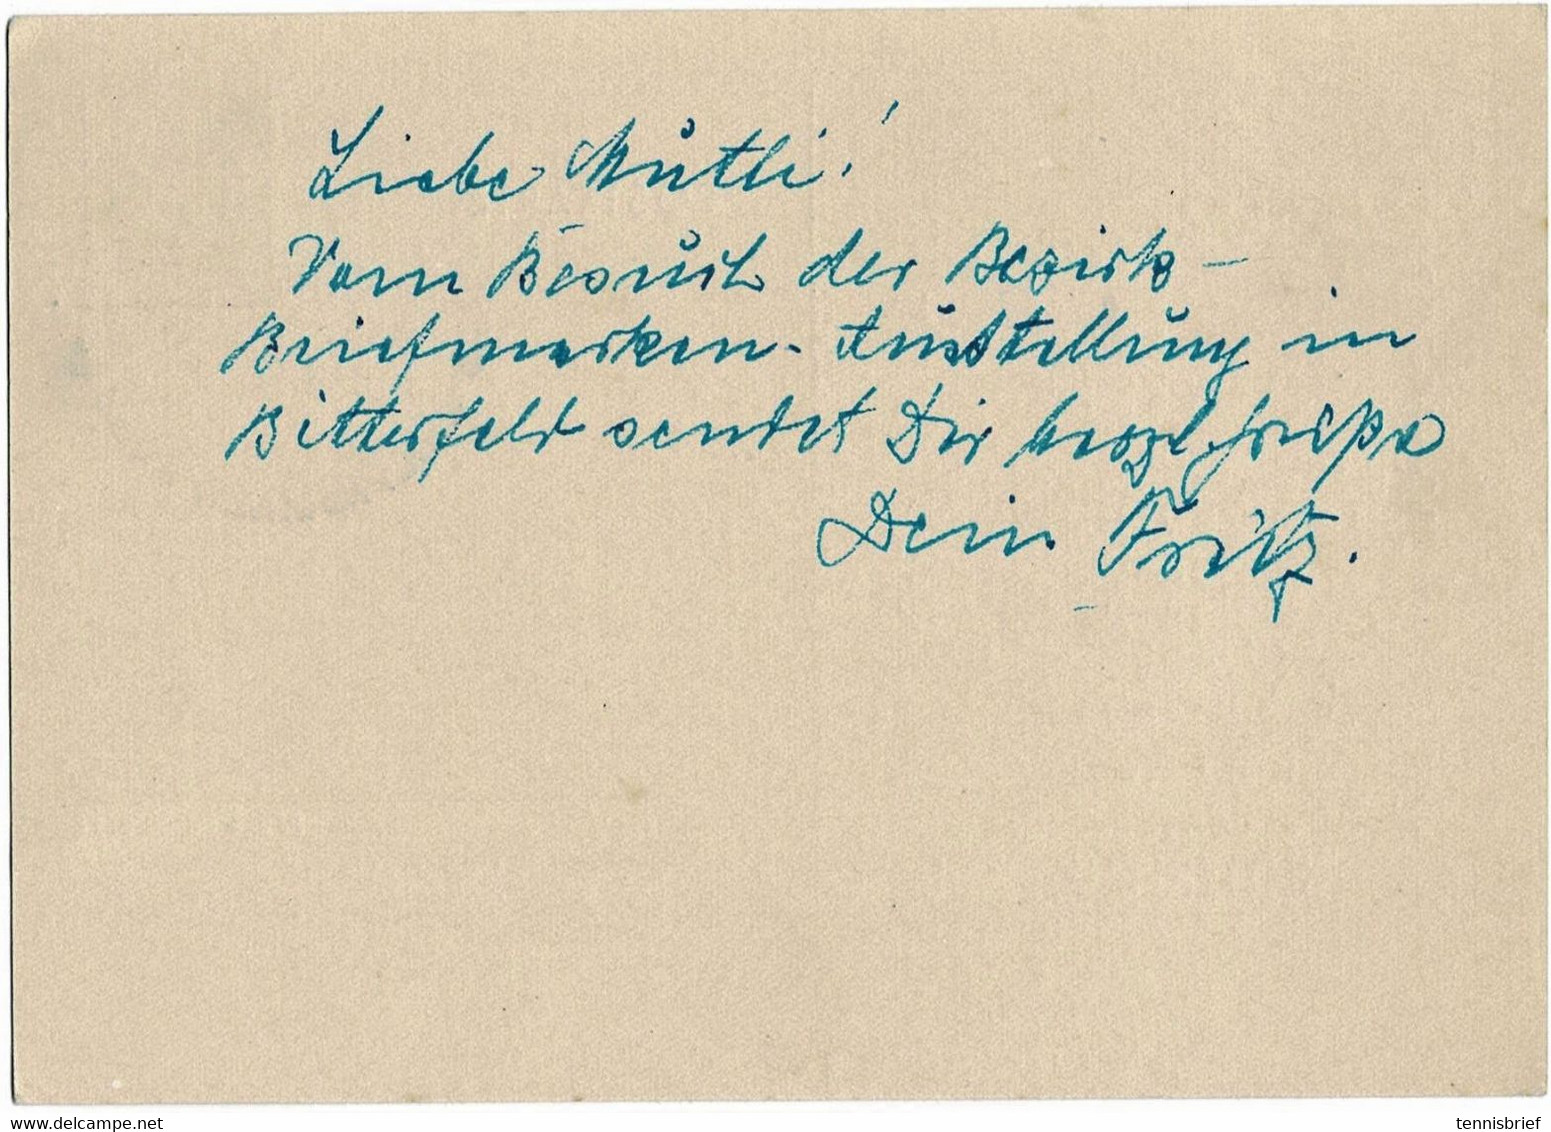 Liebe Mutti!
Vom Besuch der Bezirks-
Briefmarken-Ausstellung in
Bitterfeld sendet Dir herzl. Grüße
Dein Fritz.
www.delcampe.net
tennisbrief